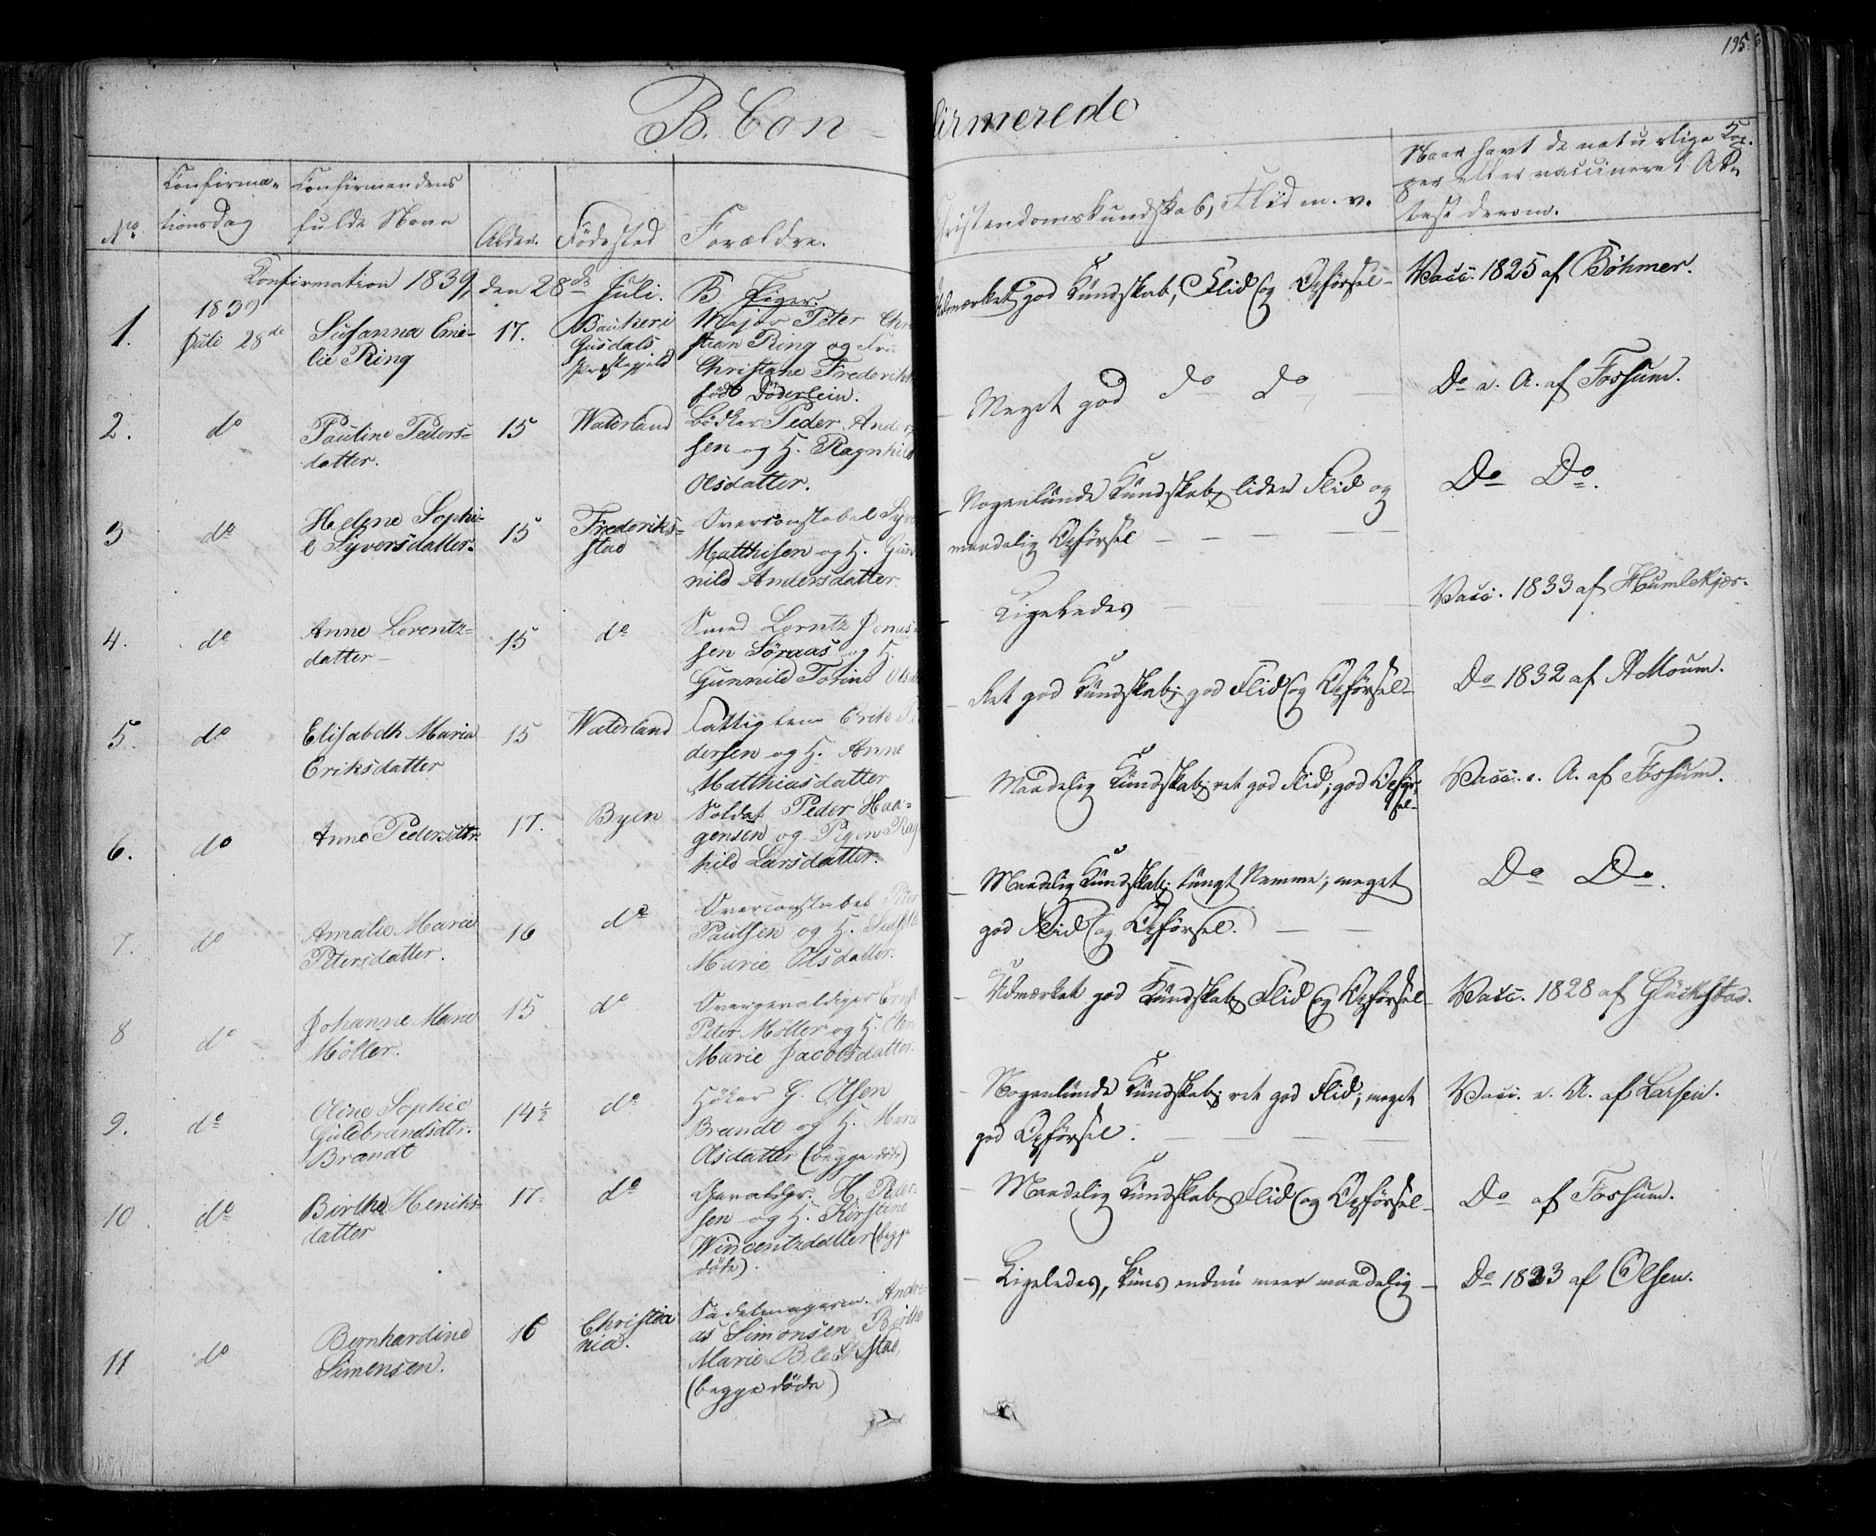 195
B. Confirmerede
No.
Confirma-
tionsdag
Confirmandens
fulde Navn
Alder.
Fødested
Forældre.
Christendomskundskab, Flid m. v.
Naar havt de naturlige Kop-
per eller vaccineret At-
test derom.
Confirmation 1839, den 28de Juli. B. Piger.
1.
1839
Juli 28de
Susanna Eme-
lie Ring
17.
Gusdals
Præstegjeld
Major Peter Chri
stian Ring og Fru
Christane Frederikke
født Döderlein.
Udmærket god Kundskab, Flid og Opførsel-
Vacc. 1825 af Bøhmer.
2.
do
Pauline Peders-
datter.
15
Waterland
Bødker Peder Ander
sen og H. Ragnhild
Olsdatter.
Meget god do do
Do u. A. af Fossum.
3
do
Helene Sophi-
e Syversdatter.
15
Frederiks-
stad
Overconstabel Syver
Matthisen og H. Gun
nild Andersdatter.
Nogenlunde Kundskab, liden Flid og
maadelig Opførsel
Do Do.
4.
do
Anne Lorentz-
datter
15
do
Smed Lorntz Jonas-
sen Søraas og H.
Gunnild Torine Olsd
Ligeledes
Vacc. 1833 af Humlekjær.
5.
do
Elisabeth Maria
Eriksdatter
15
Waterland
Fattiglem Erik Pe
dersen og H. Anne
Matthiasdatter
Ret god Kundskab, god Flid og Opførsel-
Do 1832 af A Moum.
6.
do
Anne Pedersdtr.
17.
Byen
Soldat Peder Haa-
gensen og Pigen Rag
hild Larsdatter.
Maadelig Kundskab, ret god Flid, god Opfør
sel-
Vacc. u. A. af Fossum.
7.
do
Amalie Marie
Petersdatter.
16
do
Overconstabel Peter
Paulsen og H.
Marie Olsdatter.
Maadelig Kundskab, tungt Nemme; meget
god Flid og Opførsel.
Do Do.
8
do
Johanne Marie
Møller.
15
do
Overgevaldiger Ernst
Peter Møller og H. Olen
Marie Jacobsdatter.
Udmærket god Kundskab, Flid og Opførsel-
Vacc. 1828 af Glückstad.
9.
do
Oline Sophie
Guldbrandsdtr.
Brandt
14½
do
Høker G. Olsen
Brandt og H. Maria
Olsdatter (begge døde)
Nogenlunde Kundskab, ret god Flid, meget
god Opførsel.
Vacc. u. A. af Larsen.
10
do
Birthe Henriks-
datter
17
do
Gevaldgr. H. Peder-
sen og H. Kirstine
Wincentzdatter (begge
døde).
Maadelig Kundskab, Flid og Opførsel-
Do af Fossum.
11
do
Bernhardine
Simensen.
16
Christia
nia.
Sadelmagersv. Andre
as Simonsen, Birthe
Marie
(begge døde)
Ligeledes, kuns endnu meer maadelig-
Do 1833 af Olsen.